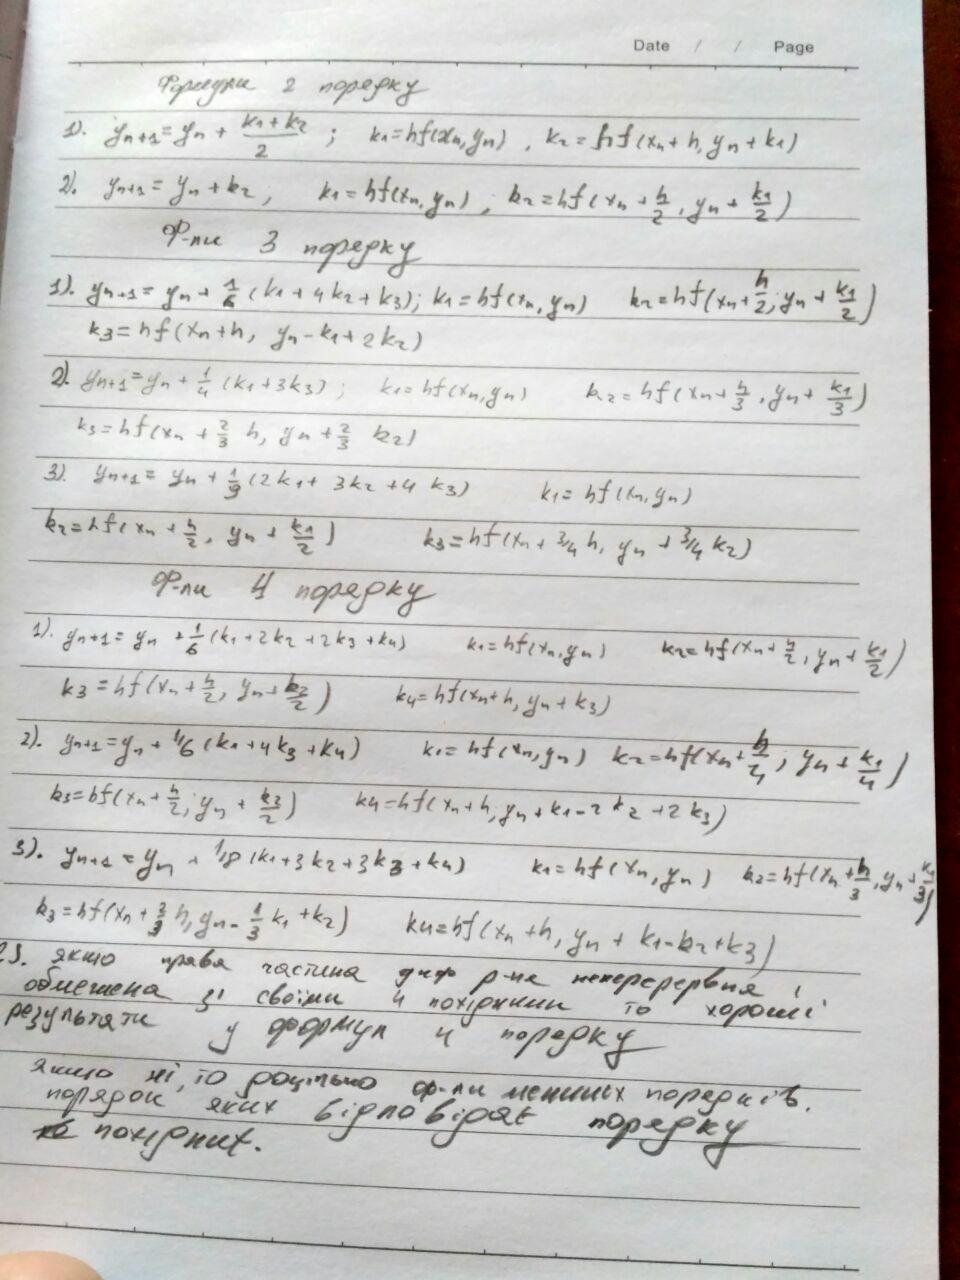 Date / / Page
Формули 2 порядку
1). yn+1 = yn + (k1 + k2)/2 ; k1 = hf(xn, yn) , k2 = hf(xn + h, yn + k1)
2). yn+1 = yn + k2 , k1 = hf(xn, yn) , k2 = hf(xn + h/2 , yn + k1/2)
Ф-ли 3 порядку
1). yn+1 = yn + 1/6 (k1 + 4k2 + k3); k1 = hf(xn, yn) k2 = hf(xn + h/2; yn + k1/2)
k3 = hf(xn + h, yn - k1 + 2k2)
2). yn+1 = yn + 1/4 (k1 + 3k3) ; k1 = hf(xn, yn) k2 = hf(xn + h/3 , yn + k1/3)
k3 = hf(xn + 2/3 h, yn + 2/3 k2)
3). yn+1 = yn + 1/9 (2k1 + 3k2 + 4 k3) k1 = hf(xn, yn)
k2 = hf(xn + h/2 , yn + k1/2) k3 = hf(xn + 3/4 h, yn + 3/4 k2)
Ф-ли 4 порядку
1). yn+1 = yn + 1/6 (k1 + 2k2 + 2k3 + k4) k1 = hf(xn, yn) k2 = hf(xn + h/2 , yn + k1/2)
k3 = hf(xn + h/2, yn + k2/2) k4 = hf(xn + h, yn + k3)
2). yn+1 = yn + 1/6 (k1 + 4k3 + k4) k1 = hf(xn, yn) k2 = hf(xn + h/4 ; yn + k1/4)
k3 = hf(xn + h/2; yn + k2/2) k4 = hf(xn + h, yn + k1 - 2 k2 + 2 k3)
3). yn+1 = yn + 1/8 (k1 + 3k2 + 3k3 + k4) k1 = hf(xn, yn) k2 = hf(xn + h/3 , yn + k1/3)
k3 = hf(xn + 2/3 h, yn - 1/3 k1 + k2) k4 = hf(xn + h, yn + k1 - k2 + k3)
23. якщо права частина диф р-ня неперервня і
обмежена зі своїми 4 похідними то хороші
результати у формул 4 порядку
якщо ні, то доцільно ф-ли менших порядків.
порядок яких відповідає порядку
похідних.